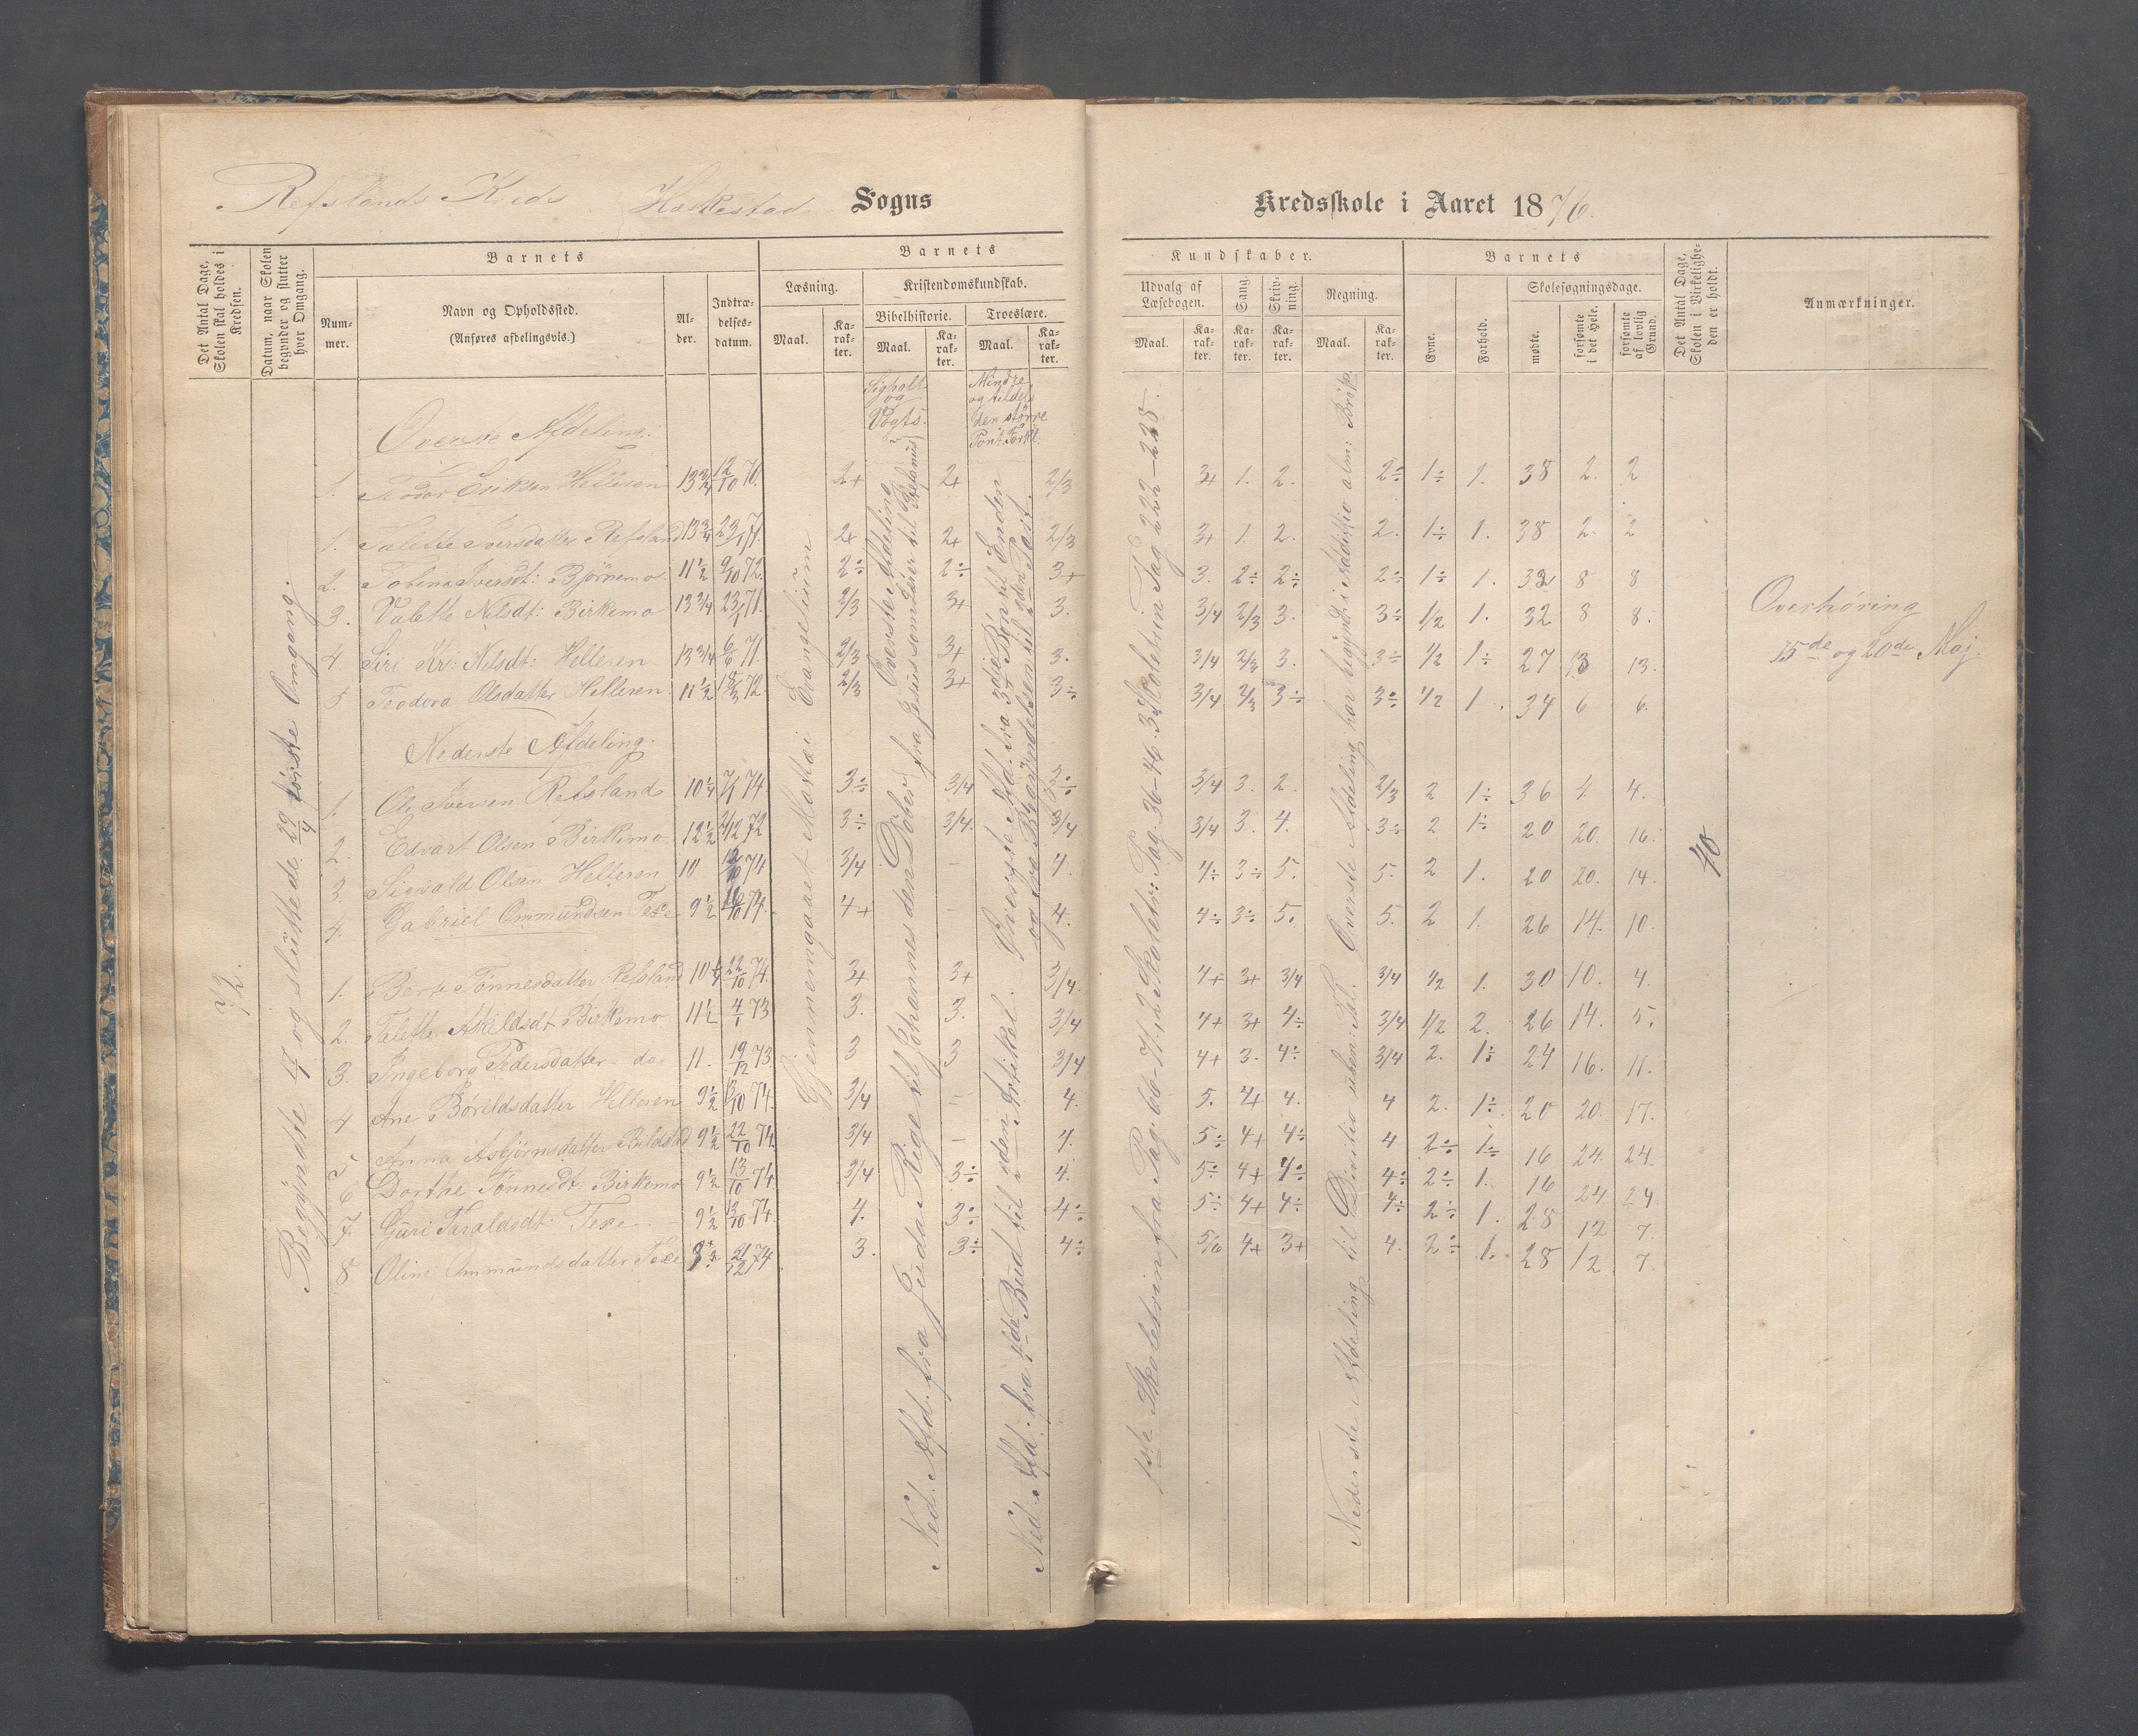 Refslands Kreds Heskestad Sogns
Kredsskole i Aaret 1876.
Det Antal Dage, Skolen skal holdes i Kredsen.
Datum, naar Skolen begynder og slutter hver Omgang.
Barnets
Nummer.
Navn og Opholdssted.
(Anføres afdelingsvis.)
Alder.
Indtrædelsesdatum.
Barnets
Læsning.
Maal.
Karakter.
Kristendomskundskab.
Bibelhistorie.
Maal.
Karakter.
Troeslære.
Maal.
Karakter.
Kundskaber.
Udvalg af Læsebogen.
Maal.
Karakter.
Sang.
Karakter.
Skrivning.
Karakter.
Regning.
Maal.
Karakter.
Barnets
Evne.
Forhold.
Skolesøgningsdage.
mødte.
forsømte i det Hele.
forsømte af lovlig Grund.
Det Antal Dage, Skolen i Virkeligheden er holdt.
Anmærkninger.
Vogts.
Mindre
og tildels
den større
Pont. Forkl.
Øverste Afdeling.
1. Todor Eriksen Helleren 13 3/4 12/10 70. 2+ 2+ 2/3 3+ 1. 2. 2÷ 1÷ 1. 38 2. 2
1. Valette Iversdatter Refsland 13 3/4 23/1 71. 2+ 2+ 2/3 3+ 1. 2. 2. 1÷ 1. 38 2. 2
2. Tobina Iversdt: Bjørnemo. 11 1/2 9/10 72. 2÷ 2÷ 3+ 3. 2÷ 2÷ 2÷ 1÷ 1. 32 8 8
3. Valette Nilsdt: Birkemo 13 3/4 23/1 71. 2/3 3+ 3. 3/4 2/3 3. 3÷ 1/2 1. 32 8 8.
4. Siri Kr: Nilsdt: Helleren 13 3/4 6/6 71. 2/3 3+ 3. 3/4 2/3 3. 3÷ 1/2 1÷ 27 13 13.
5 Teodora Olsdatter Helleren 11 1/2 72 2/3 3+ 3÷ 3/4 2/3 3÷ 3÷ 1/2 1. 34 6 6.
Nederste Afdeling.
1. Ole Iversen Refsland 10 1/4 74 3÷ 3/4 3÷ 3/4 3. 2. 2/3 2 1÷ 36 4 4.
2. Edvart Olsen Birkemo 12 1/2 72 3÷ 3/4. 3/4 3/4 3. 4. 3÷ 2. 1÷ 20 20. 16.
3. Sigvald Olsen Helleren 10 74 3/4 – 4. 4÷ 3÷ 5. 5. 2 1. 20 20. 14.
4. Gabriel Ommundsen Texe 9 1/2 74. 4+ – 4. 4÷ 3÷ 5. 5. 2 1. 26 14. 10.
1. Berte Tønnesdatter Refsland 10 1/4 22/10 74. 3+ 3+ 3/4. 4+ 3+ 3/4 3/4 1/2 1. 30 10. 4.
2. Valette Akildsdt Birkemo 11 1/2 4/1 73 3. 3. 3/4 4+ 3+ 4÷ 3/4 1/2 2. 26 14. 5.
3. Ingeborg Pedersdatter do 11. 19/12 73. 3 3 3/4 4+ 3. 4÷ 3/4 2. 1÷ 24 16. 11.
4 Ane Børildsdatter Helleren 9 1/2 74. 3/4 – 4. 5. 4+ 4. 4 2. 1÷ 20 20. 17.
5 Anna Asbjørnsdatter Bilstad 9 1/2 22/10 74. 3/4 – 4. 5÷ 4+ 4÷ 4 2÷ 1÷ 16 24. 24.
6 Dorthe Tønnesdt Birkemo 9 1/2 13/10 74. 3/4 3÷ 4. 5÷ 4+ 4÷ 4÷ 2÷ 1. 16 24. 24.
7. Guri Taraldsdt: Texe 9 1/2 13/10 74. 4. 3÷ 4÷ 5÷ 4+ 4÷ 4÷ 2÷ 1. 28 12 7.
8 Oline Ommundsdatter Texe 21/12 74 3. 3÷ 4÷ 5/6 4+ 3+ 4. 2÷ 1. 28 12 7.
Begyndte 4 og sluttede 29/4 første Omgang.
Gjennemgaaet Mattæi Evangelium
Ned. Afd. fra Juda Rige til Johannes den Døber
Øverste Afdeling fra Jesus som Lærer til Stefanus
Ned. Afd. fra 4de Bud til 2den Artikel.
Øverste Afd. fra 3die Bøn til Enden
og fra Begyndelsen til 2den Part.
1ste Skoletrin fra Pag. 66-71. 2 Skoletr: Pag. 36-46. 3 Skoletrin Pag 222-228.
Nederste Afdeling til Divitio uben: Tal. Øverste Afdeling har begyndt i Additio alm: Brøk
40
Overhøring
15de og 20de Maj.